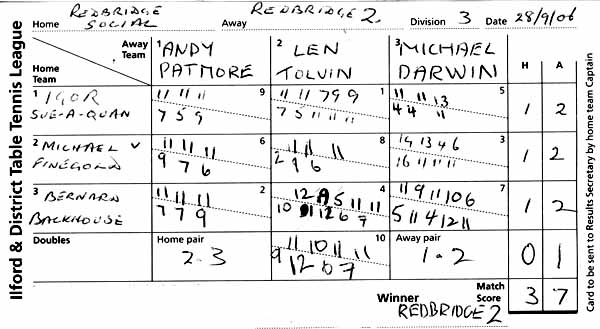 Ilford & District Table Tennis League
Home REDBRIDGE SOCIAL Away REDBRIDGE 2. Division 3 Date 28/9/06
Away Team
Home Team
1 ANDY PATMORE
2 LEN TOLVIN
3 MICHAEL DARWIN
H A
1 IGOR SUE-A-QUAN
9
11 11 11
7 5 9
1
11 11 7 9 9
7 5 11 11 11
5
11 11 13
4 4 11
1 2
2 MICHAEL FINEGOLD
6
11 11 11
9 7 6
8
11 11 11
2 9 6
3
14 13 4 6
16 11 11 11
1 2
3 BERNARD BACKHOUSE
2
11 11 11
7 7 9
4
12 5 11 11
10 11 12 6 7
7
11 9 11 10 6
5 11 4 12 11
1 2
Doubles
Home pair
2-3
10
11 10 11 11
9 12 0 7
Away pair
1-2
0 1
Winner REDBRIDGE 2
Match Score 3 7
Card to be sent to Results Secretary by home team Captain